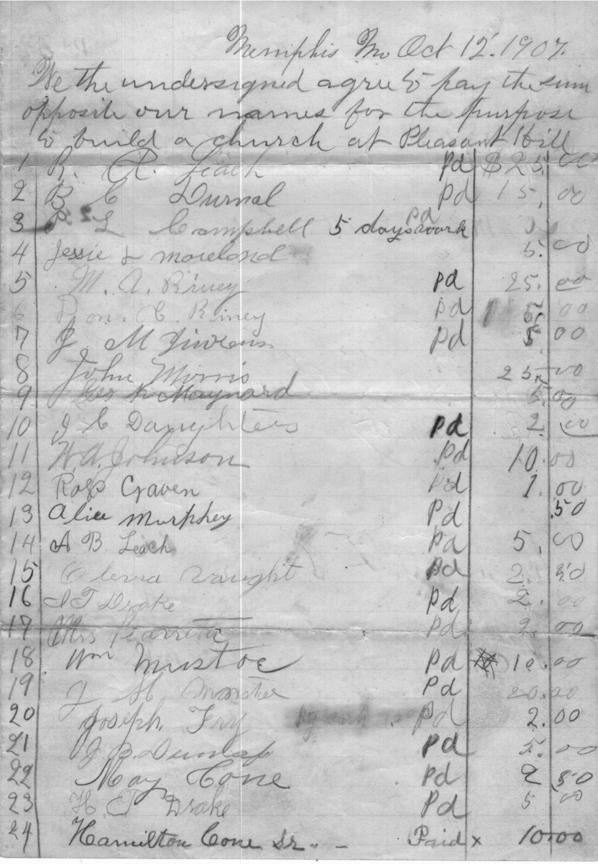 Memphis Mo Oct 12. 1907.
We the undersigned agree to pay the sum
opposite our names for the purpose
to build a church at Pleasant Hill
1 R. A. Leach Pd $25.00
2 B C Durnal Pd 15.00
3 L Campbell 5 days work Pd
4 Jessie L Moreland 5.00
5 M. A. Riney Pd 25.00
6 C. Riney Pd 5.00
7 J. M. Pd 5.00
8 John Morris 25.00
9 Maynard 5.00
10 J C Daughters Pd 2.00
11 W A Johnson Pd 10.00
12 Rose Craven Pd 1.00
13 Alice Murphey Pd .50
14 A B Leach Pd 5.00
15 Vaught Pd 2.50
16 Drake Pd 2.00
17 Mrs Pd 2.00
18 Wm Mustoe Pd 10.00
19 J Pd 20.00
20 Joseph Fry Pd 2.00
21 J B Dunlap Pd 5.00
22 May Cone Pd 2.50
23 H. T Drake Pd 5.00
24 Hamilton Cone Sr. - - Paid x 10.00